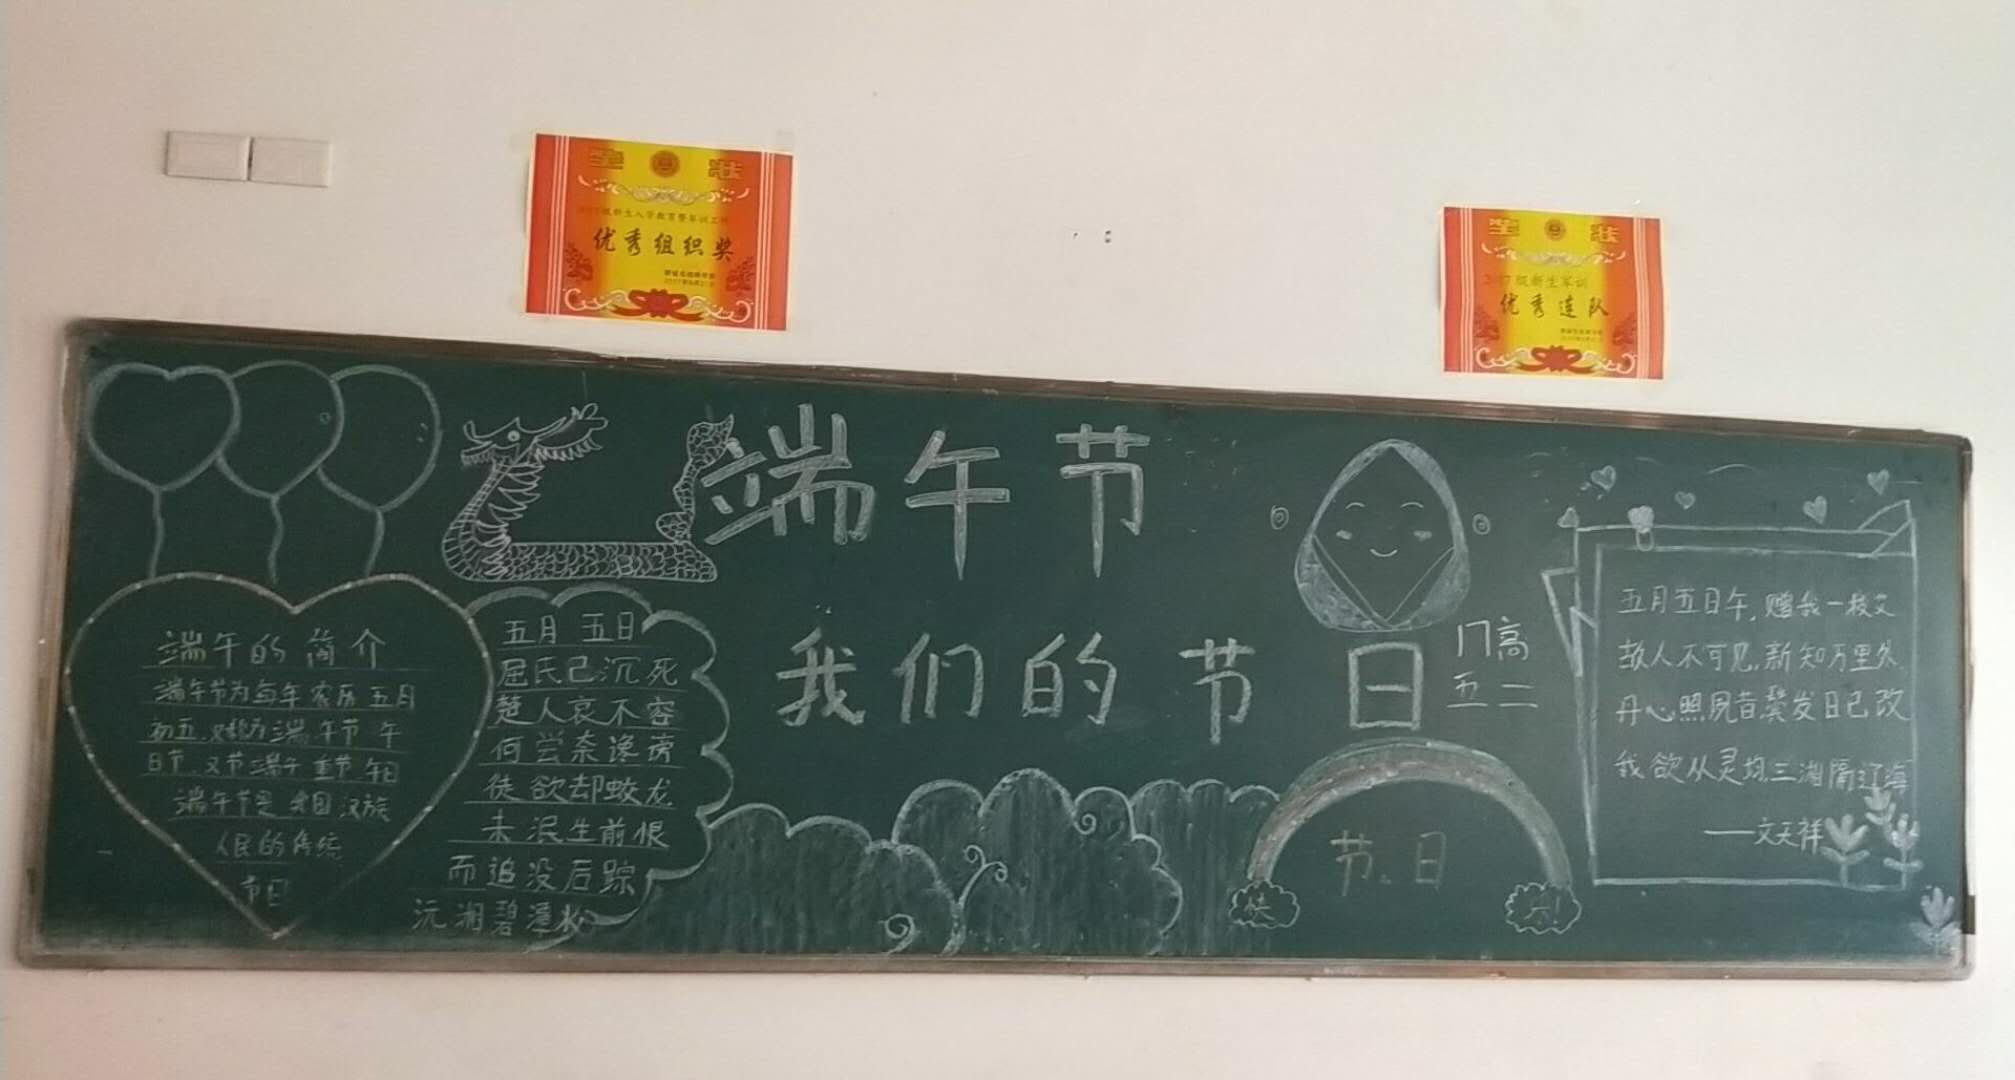 奖 状
级新生入学教育暨军训工作
优秀组织奖
奖 状
2017级新生军训
优秀连队
端午节
我们的节日
门高
五二
端午的简介
端午节为每年农历五月
初五,又称为端午节 午
日节、又节端午 重节 午日
端午节是我国汉族
人民的传统
节日
五月五日
屈氏已沉死
楚人哀不容
何尝奈谗谤
徒欲却蛟龙
未泯生前恨
而追没后踪
沅湘碧潭水
节日
快
乐!
五月五日午,赠我一枝艾
故人不可见,新知万里外
丹心照夙昔鬓发日已改
我欲从灵均三湘隔辽海
——文天祥